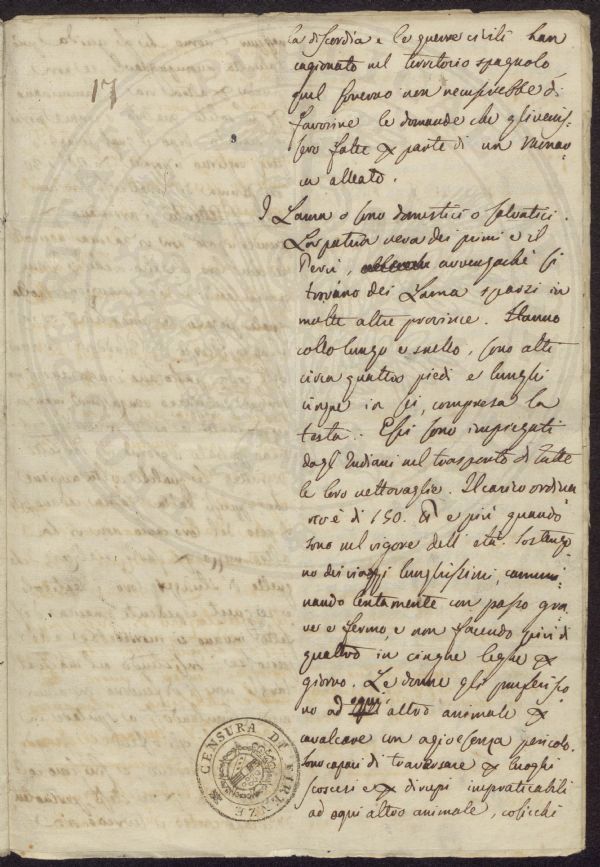 17
la discordia e le guerre civili han
cagionato nel territorio spagnolo
quel Governo non recuserebbe di
favorire le domande che gli venis-
sero fatte per parte di un
alleato.
I Lama o sono domestici o salvatici.
La patria vera dei primi è il
Perù, avvengachè si
trovano dei Lama sparsi in
molte altre province. Hanno
collo lungo e snello, sono alti
circa quattro piedi e lunghi
cinque in sei, compresa la
testa. Essi sono impiegati
dagl'Indiani nel trasporto di tutte
le loro vettovaglie. Il carico ordina
rio è di 150. e più quando
sono nel vigore dell'età. Sostengo-
no dei viaggi lunghissimi, cammi-
nando lentamente con passo gra-
ve e fermo, e non facendo più di
quattro in cinque leghe per
giorno. Le donne gli preferisco
no ad ogni altro animale per
cavalcare con agio e senza pericolo.
Sono capaci di traversare per luoghi
scoscesi e per dirupi impraticabili
ad ogni altro animale, cosicchè
CENSURA DI FIRENZE